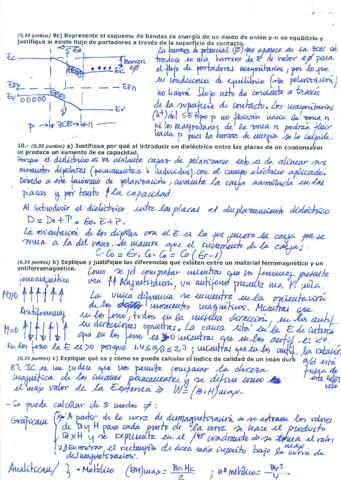 (0,33 puntos) 9c) Represente el esquema de bandas de energía de un diodo de unión p-n en equilibrio y
justifique si existe flujo de portadores a través de la superficie de contacto.
La barrera de potencial (Ø) que aparece en la ZCE se
traduce en una barrera de E de valor eØ para
el flujo de portadores mayoritarios, por lo que
en condiciones de equilibrio (sin polarización)
no habrá flujo neto de corriente a través
de la superficie de contacto. Los mayoritarios
(h+) del SE tipo p no fluirán hacia la zona n
ni los mayoritarios de la zona n podrán fluir
hacia p pues la barrera de energía se lo impide.
Ec
Ec
Barrera
EFp
EFn
Ev
Ev
p → ZCE ← n
10.- (0,33 puntos) a) Justifique por qué al introducir un dieléctrico entre las placas de un condensador
se produce un aumento de su capacidad.
Porque el dieléctrico es un aislante capaz de polarizarse esto es de alinear sus
momentos dipolares (permanentes o inducidos) con el campo eléctrico aplicado.
Debido a este fenómeno de polarización, aumenta la carga acumulada en las
placas y por tanto ↑ la capacidad.
Al introducir el dieléctrico entre las placas el desplazamiento dieléctrico
D = D0 + P = ε0.E + P.
La orientación de los dipolos con el E es la que
suma a la del vacío. De manera que el incremento de la carga:
C - C0 = εr.C0 - C0 = C0 (εr - 1)
(0,33 puntos) b) Explique y justifique las diferencias que existen entre un material ferromagnético y un
antiferromagnético.
Como se pd comprobar mientras que un ferromag. presenta
una ↑↑ Magnetización, un antiferro presenta una M nula.
Ferromagnético
M≠0
La única diferencia se encuentra en la orientación
de los momentos magnéticos. Mientras que
Antiferromag.
en los ferro, todos en la misma dirección, en los antif
en direcciones opuestas. La causa está en la E de interac
M=0
que en los ferro es >0 mientras que en los antif es <0.
(0,35 puntos) c) Explique qué es y cómo se puede calcular el índice de calidad de un imán duro
El IC es un índice que nos permite comparar la dureza
magnética de los imanes permanentes y se define como
el max valor de la Expresión ⇒ W = (B.H)max.
- Se puede calcular de 3 modos ≠:
Gráficam.
1º A partir de la curva de desmagnetización ⇒ se extraen los valores
de B y H para cada punto de la curva se hace el producto
BxH y se representa en el 1er cuadrante ⇒ se toma el valor max
2º) Encontrar el rectángulo de área max inscrito bajo la curva de
desmagnetización.
Analíticam.
• Metálico (BH)max = Br.Hc / 2 ; no metálico = Br² / 4